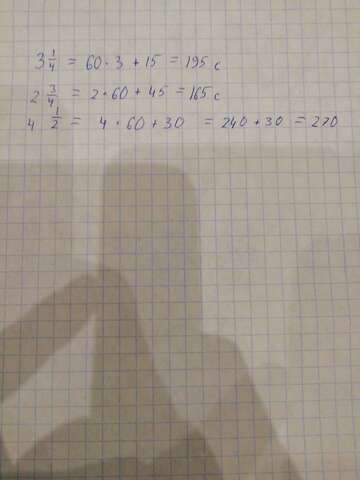 3 1/4 = 60 · 3 + 15 = 195 с
2 3/4 = 2 · 60 + 45 = 165 с
4 1/2 = 4 · 60 + 30 = 240 + 30 = 270